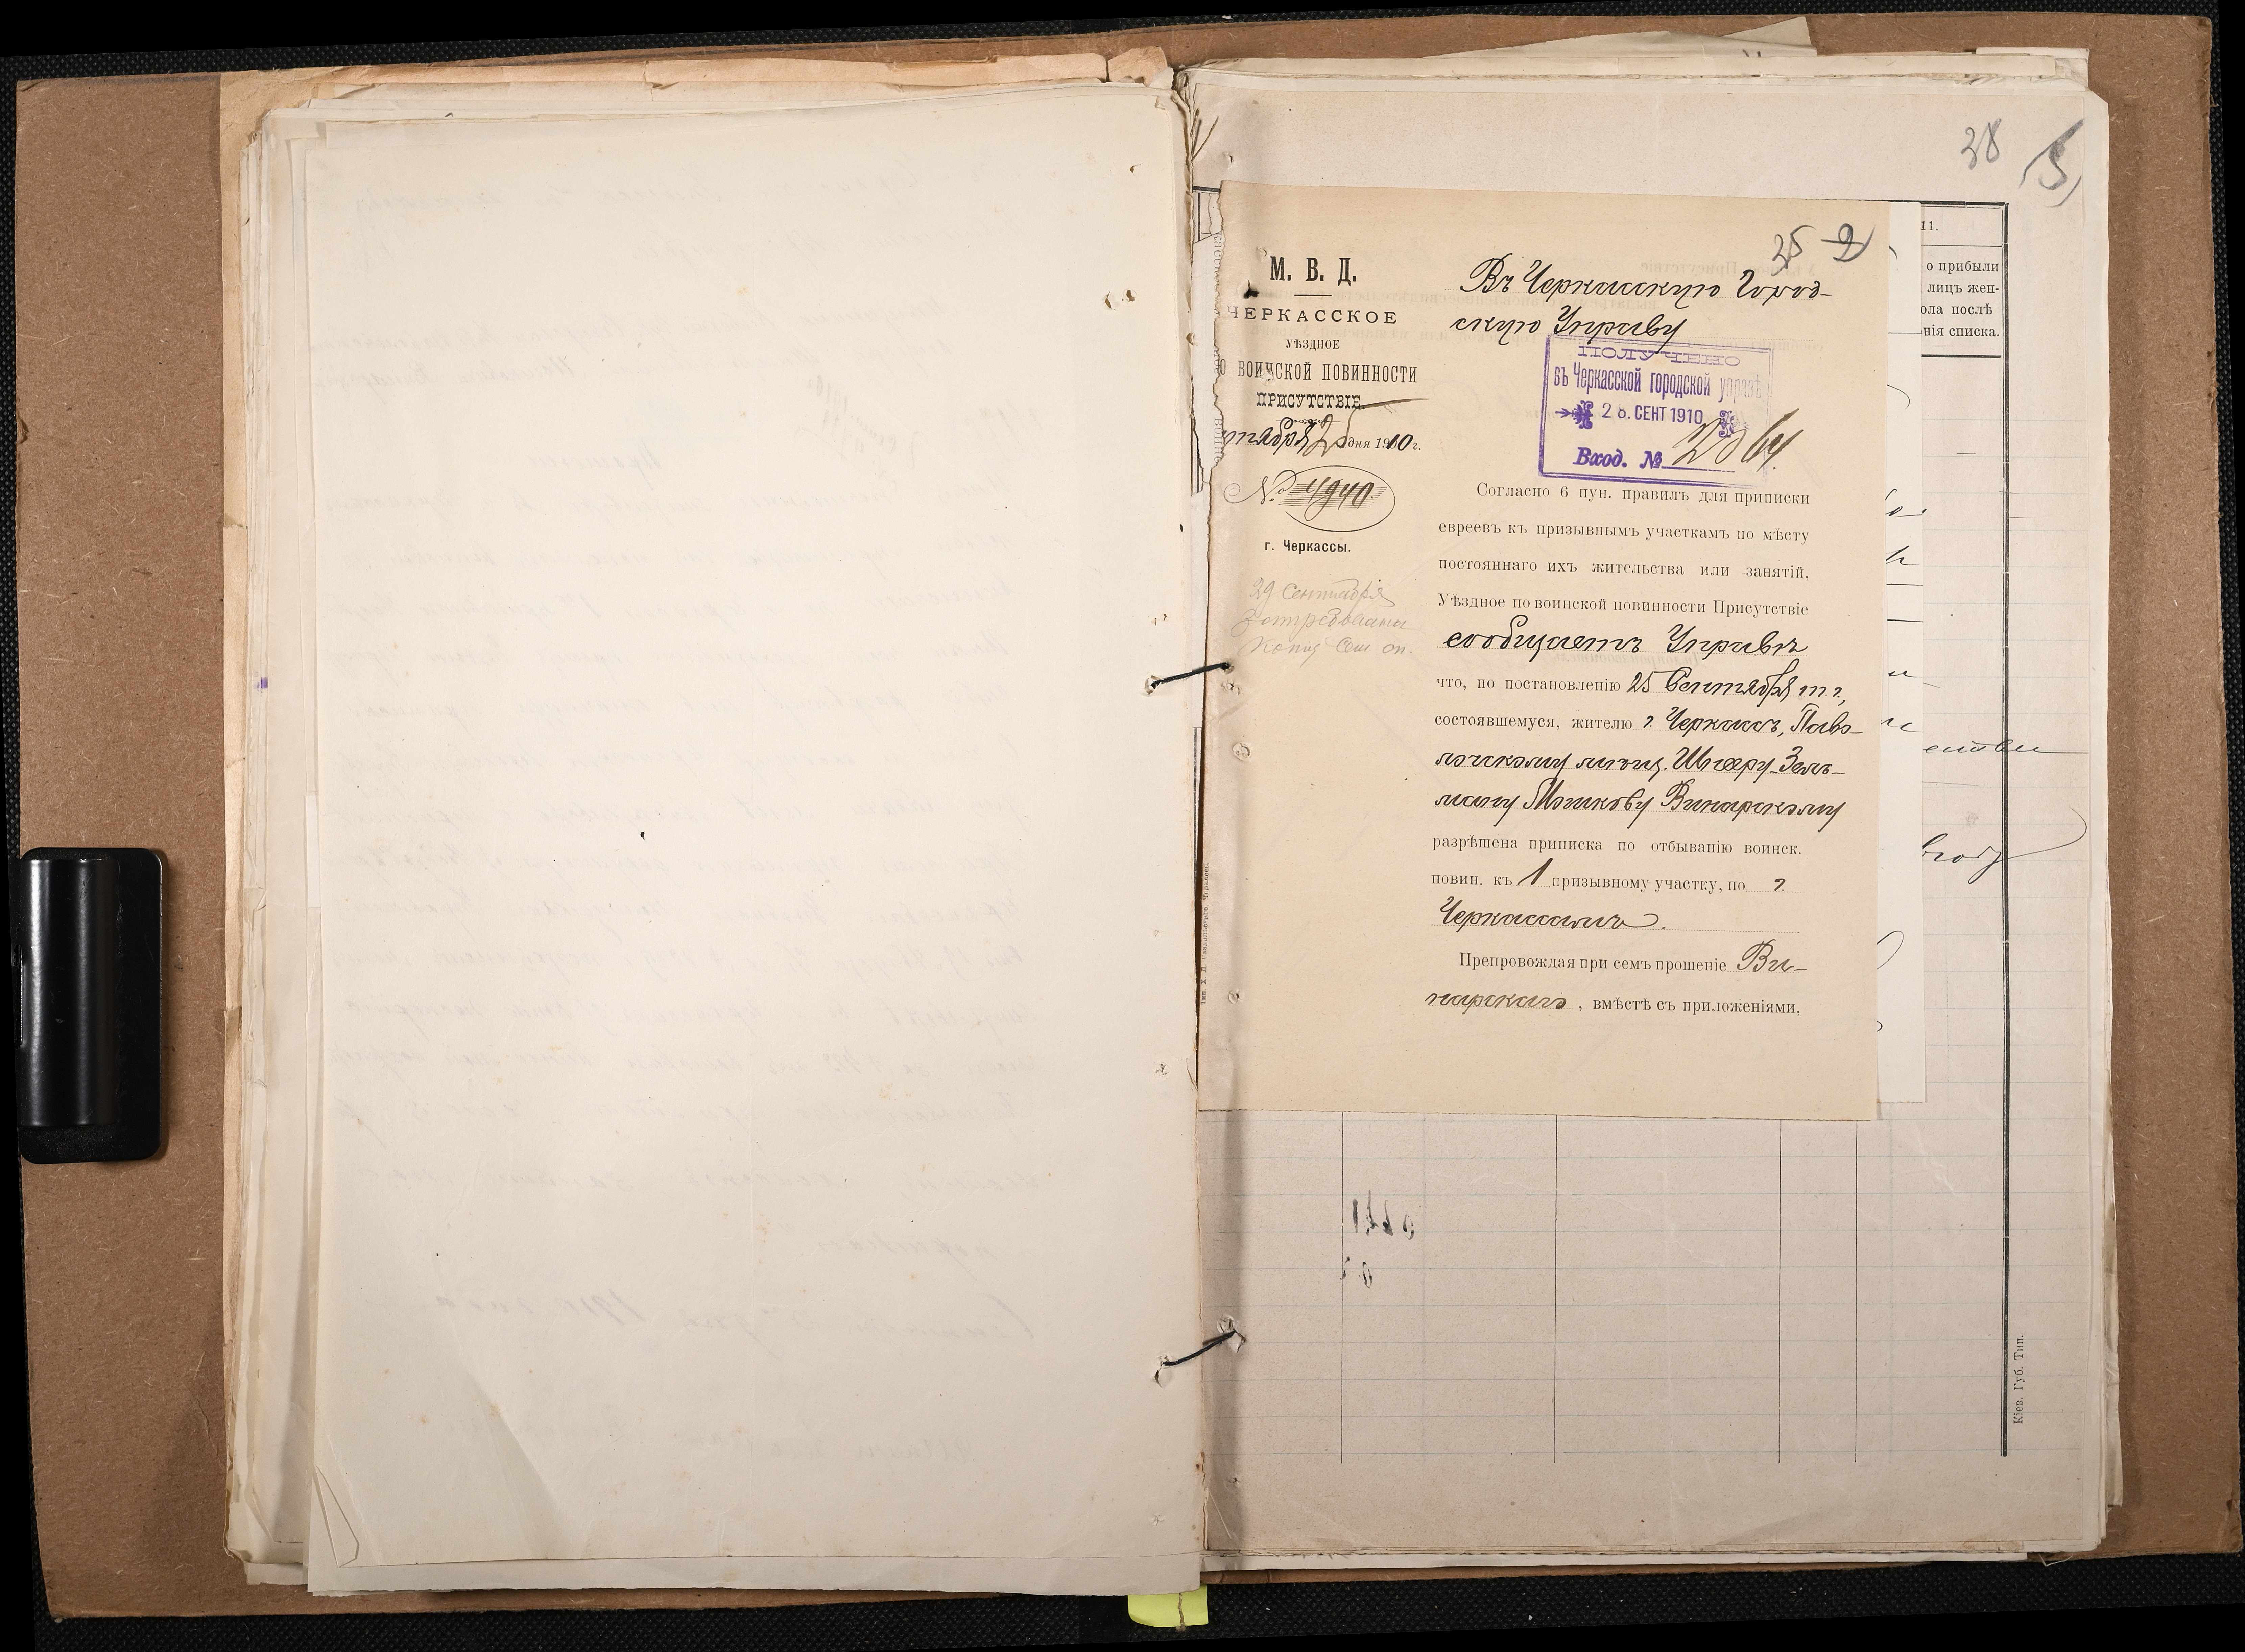 38
11.
о прибыли
лицъ жен-
ола послѣ
нія списка.
25
М. В. Д.
ЧЕРКАССКОЕ
УѢЗДНОЕ
О ВОИНСКОЙ ПОВИННОСТИ
ПРИСУТСТВІЕ.
тября 25 дня 1910 г.
№ 4940.
г. Черкассы.
29 Сентября
Затребована
Копія Сем сп.
Въ Черкасскую Город-
скую Управу
ПОЛУЧЕНО
въ Черкасской городской управѣ
28. СЕНТ 1910
Вход. №
Согласно 6 пун. правилъ для приписки
евреевъ къ призывнымъ участкамъ по мѣсту
постояннаго ихъ жительства или занятій,
Уѣздное по воинской повинности Присутствіе
сообщаетъ Управѣ
что, по постановленію 25 Сентября т. г.,
состоявшемуся, жителю г. Черкасъ, Паво-
лочскому мѣщ. Шнееру-Зель-
ману Мошкову Винарскому
разрѣшена приписка по отбыванію воинск.
повин. къ 1 призывному участку, по г.
Черкассамъ.
Препровождая при семъ прошеніе Ви-
нарскаго, вмѣстѣ съ приложеніями,
Кіев. Губ. Тип.